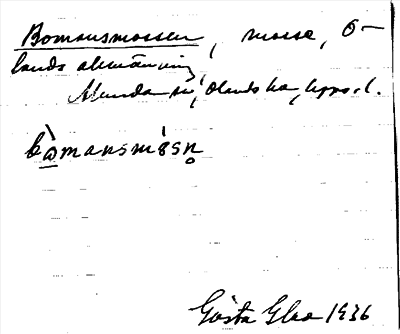 Bomansmossen, mosse, Ö-
lands allmänning
Alunda sn, Olands hd, Upps. l.
bòmansmósn̥
Gösta Glas 1936